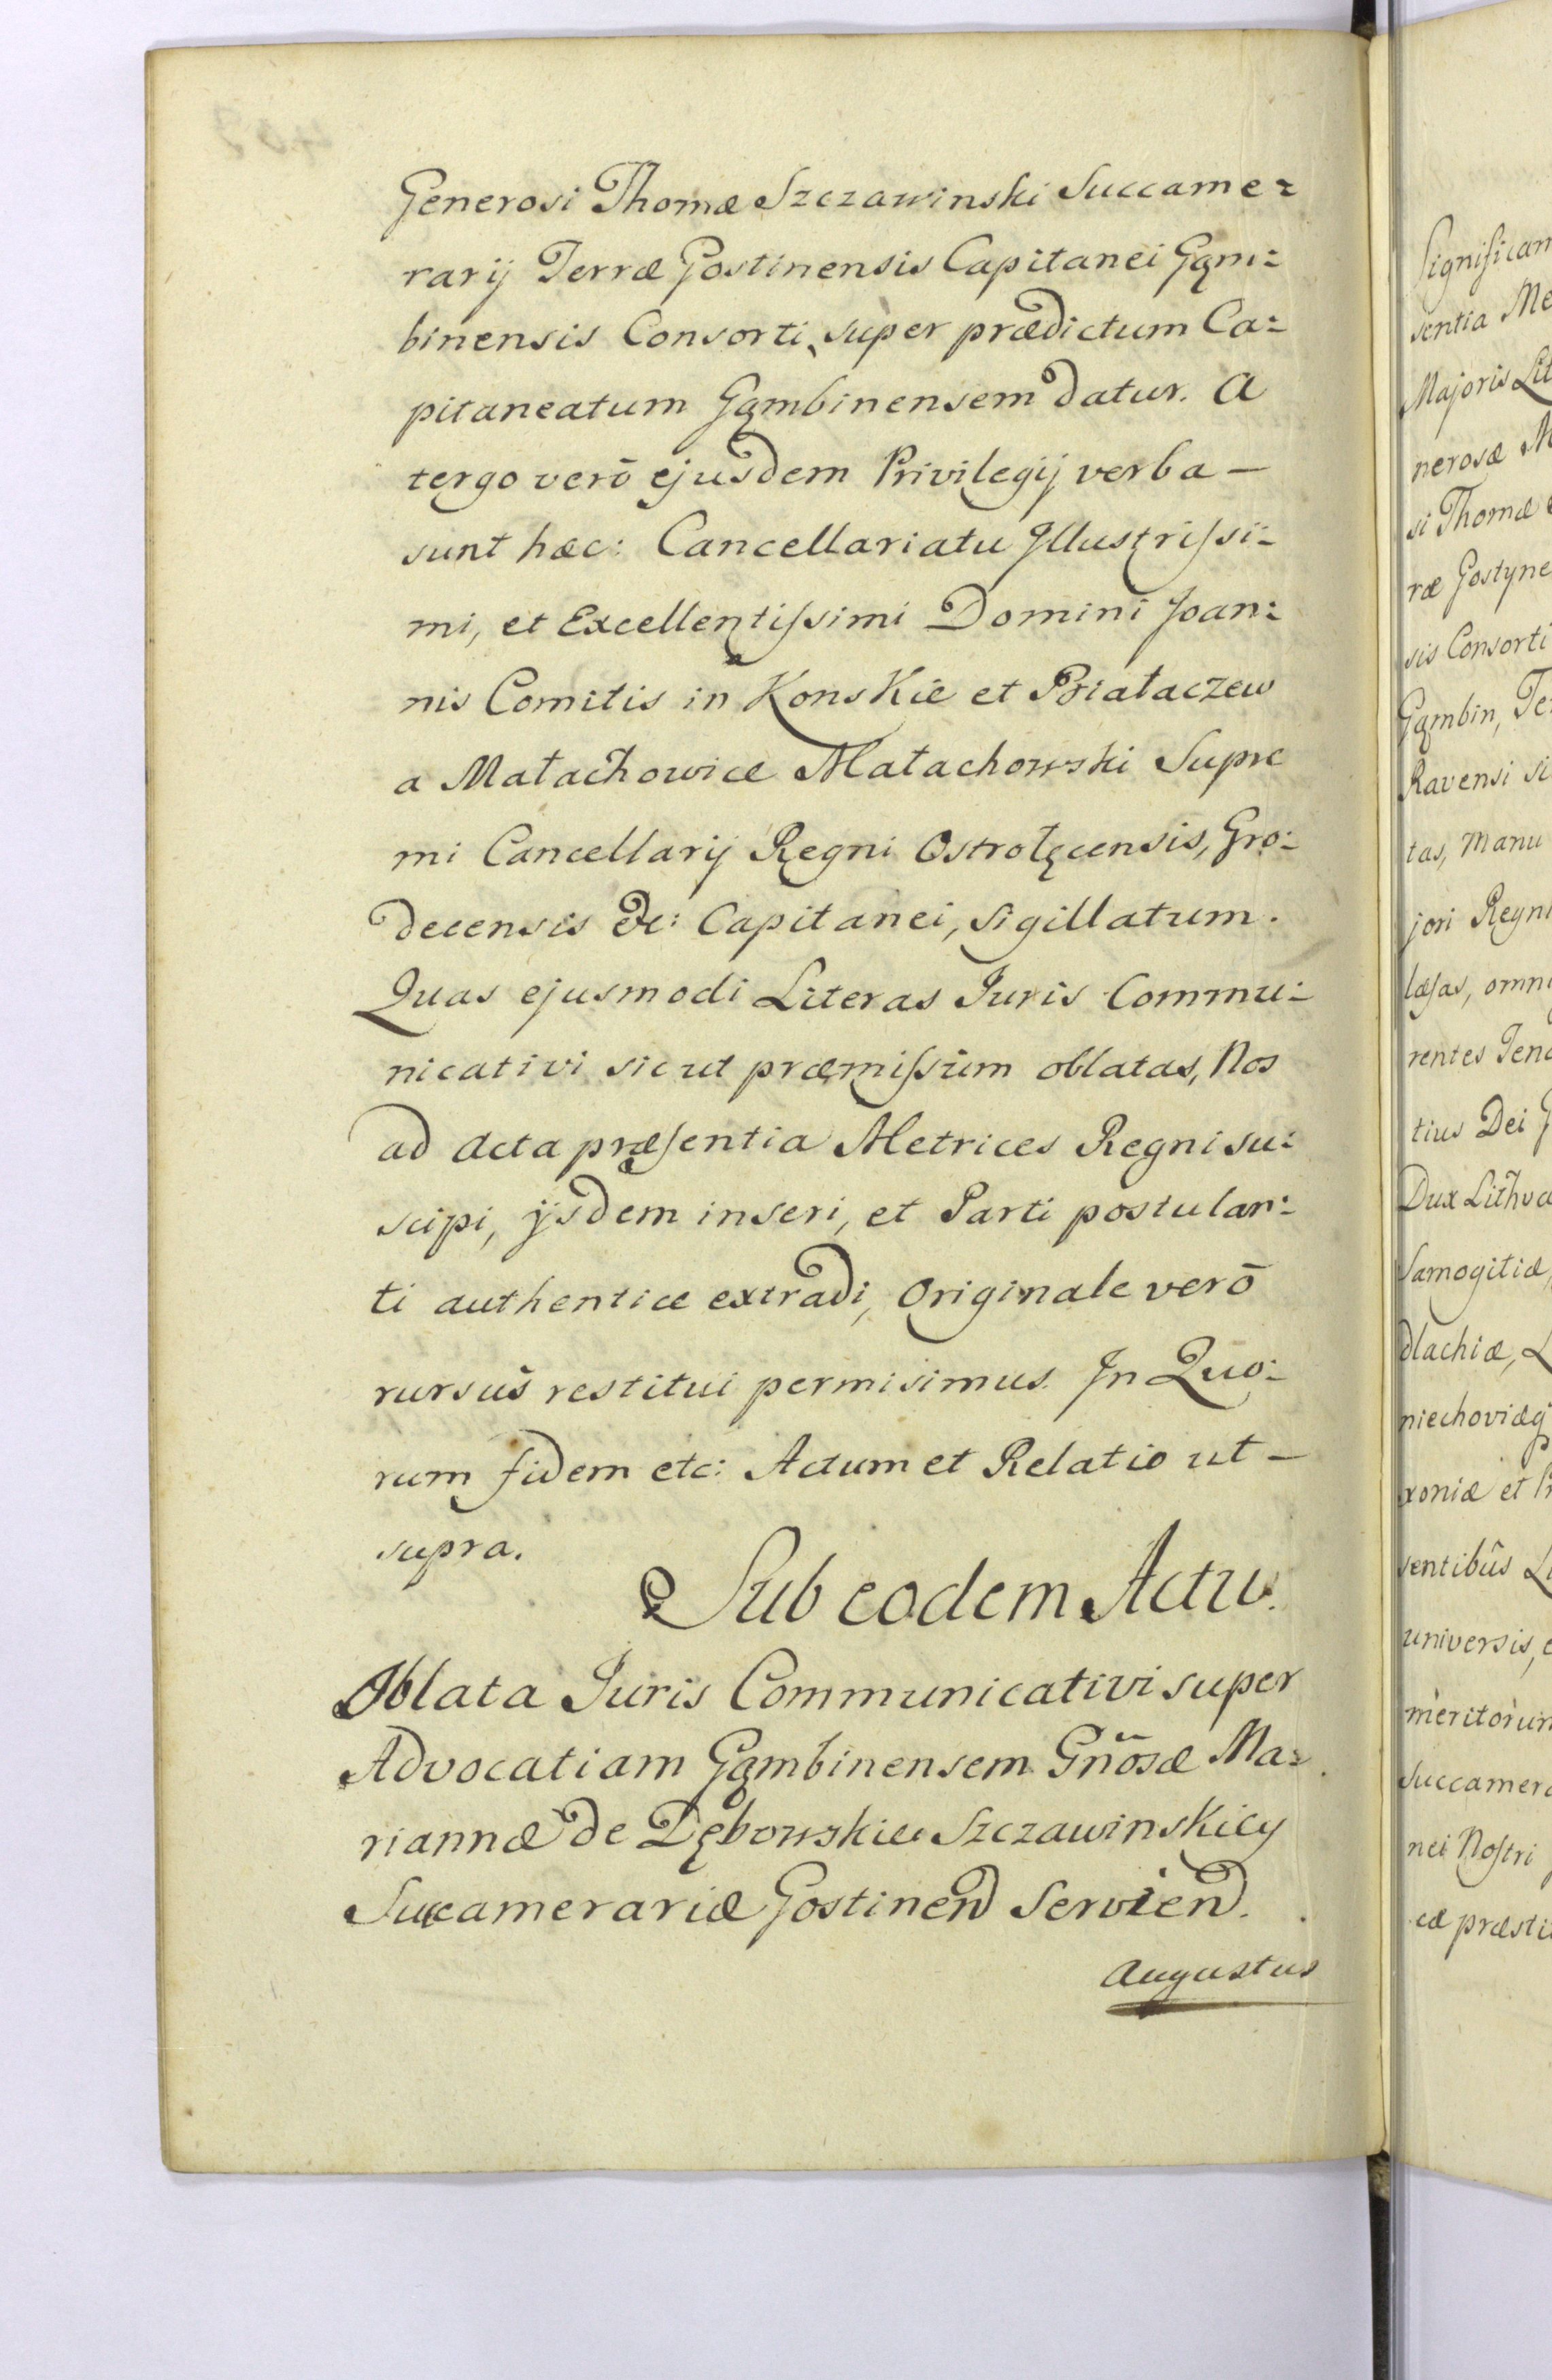 Generosi Thomæ Szczawinski Succame=
rarij Terræ Gostinensis Capitanei Gąm=
binensis Consorti, super prædictum Ca=
pitaneatum Gąmbinensem datur. A
tergo verō ejusdem Privilegij verba —
sunt hæc: Cancellariatu Illustrissi=
mi, et Excellentissimi Domini Joan=
nis Comitis in Konskie et Białaczew
a Małachowice Małachowski Supre
mi Cancellarij Regni Ostrołęcensis, Gro=
decensis &c: Capitanei, sigillatum.
Quas ejusmodi Literas Juris Commu=
nicativi sicut præmissum oblatas, Nos
ad Acta præsentia Metrices Regni su=
scipi, ijsdem inseri, et Parti postulan=
ti authentice extradi, Originale verō
rursus restitui permisimus. In Quo=
rum fidem etc: Actum et Relatio ut —
supra.
Sub eodem Actu.
Oblata Juris Communicativi super
Advocatiam Gąmbinensem Gnōsæ Ma=
riannæ de Dębowskie Szczawinskicy
Succamerariæ Gostinen Servien.
Augustus
Significam
sentia Me
Majoris Lit
nerosæ M
si Thomæ
ræ Gostyne
sis Consorti
Gąmbin, Te
Ravensi si
tas, Manu
jori Regni
læsas, omni
rentes Teno
tius Dei G
Dux Lithva
Samogitiæ,
dlachiæ, L
niechoviæq
xoniæ et Pr
sentibūs Li
universis, e
meritorum
Succamera
nei Nostri
cæ præsti